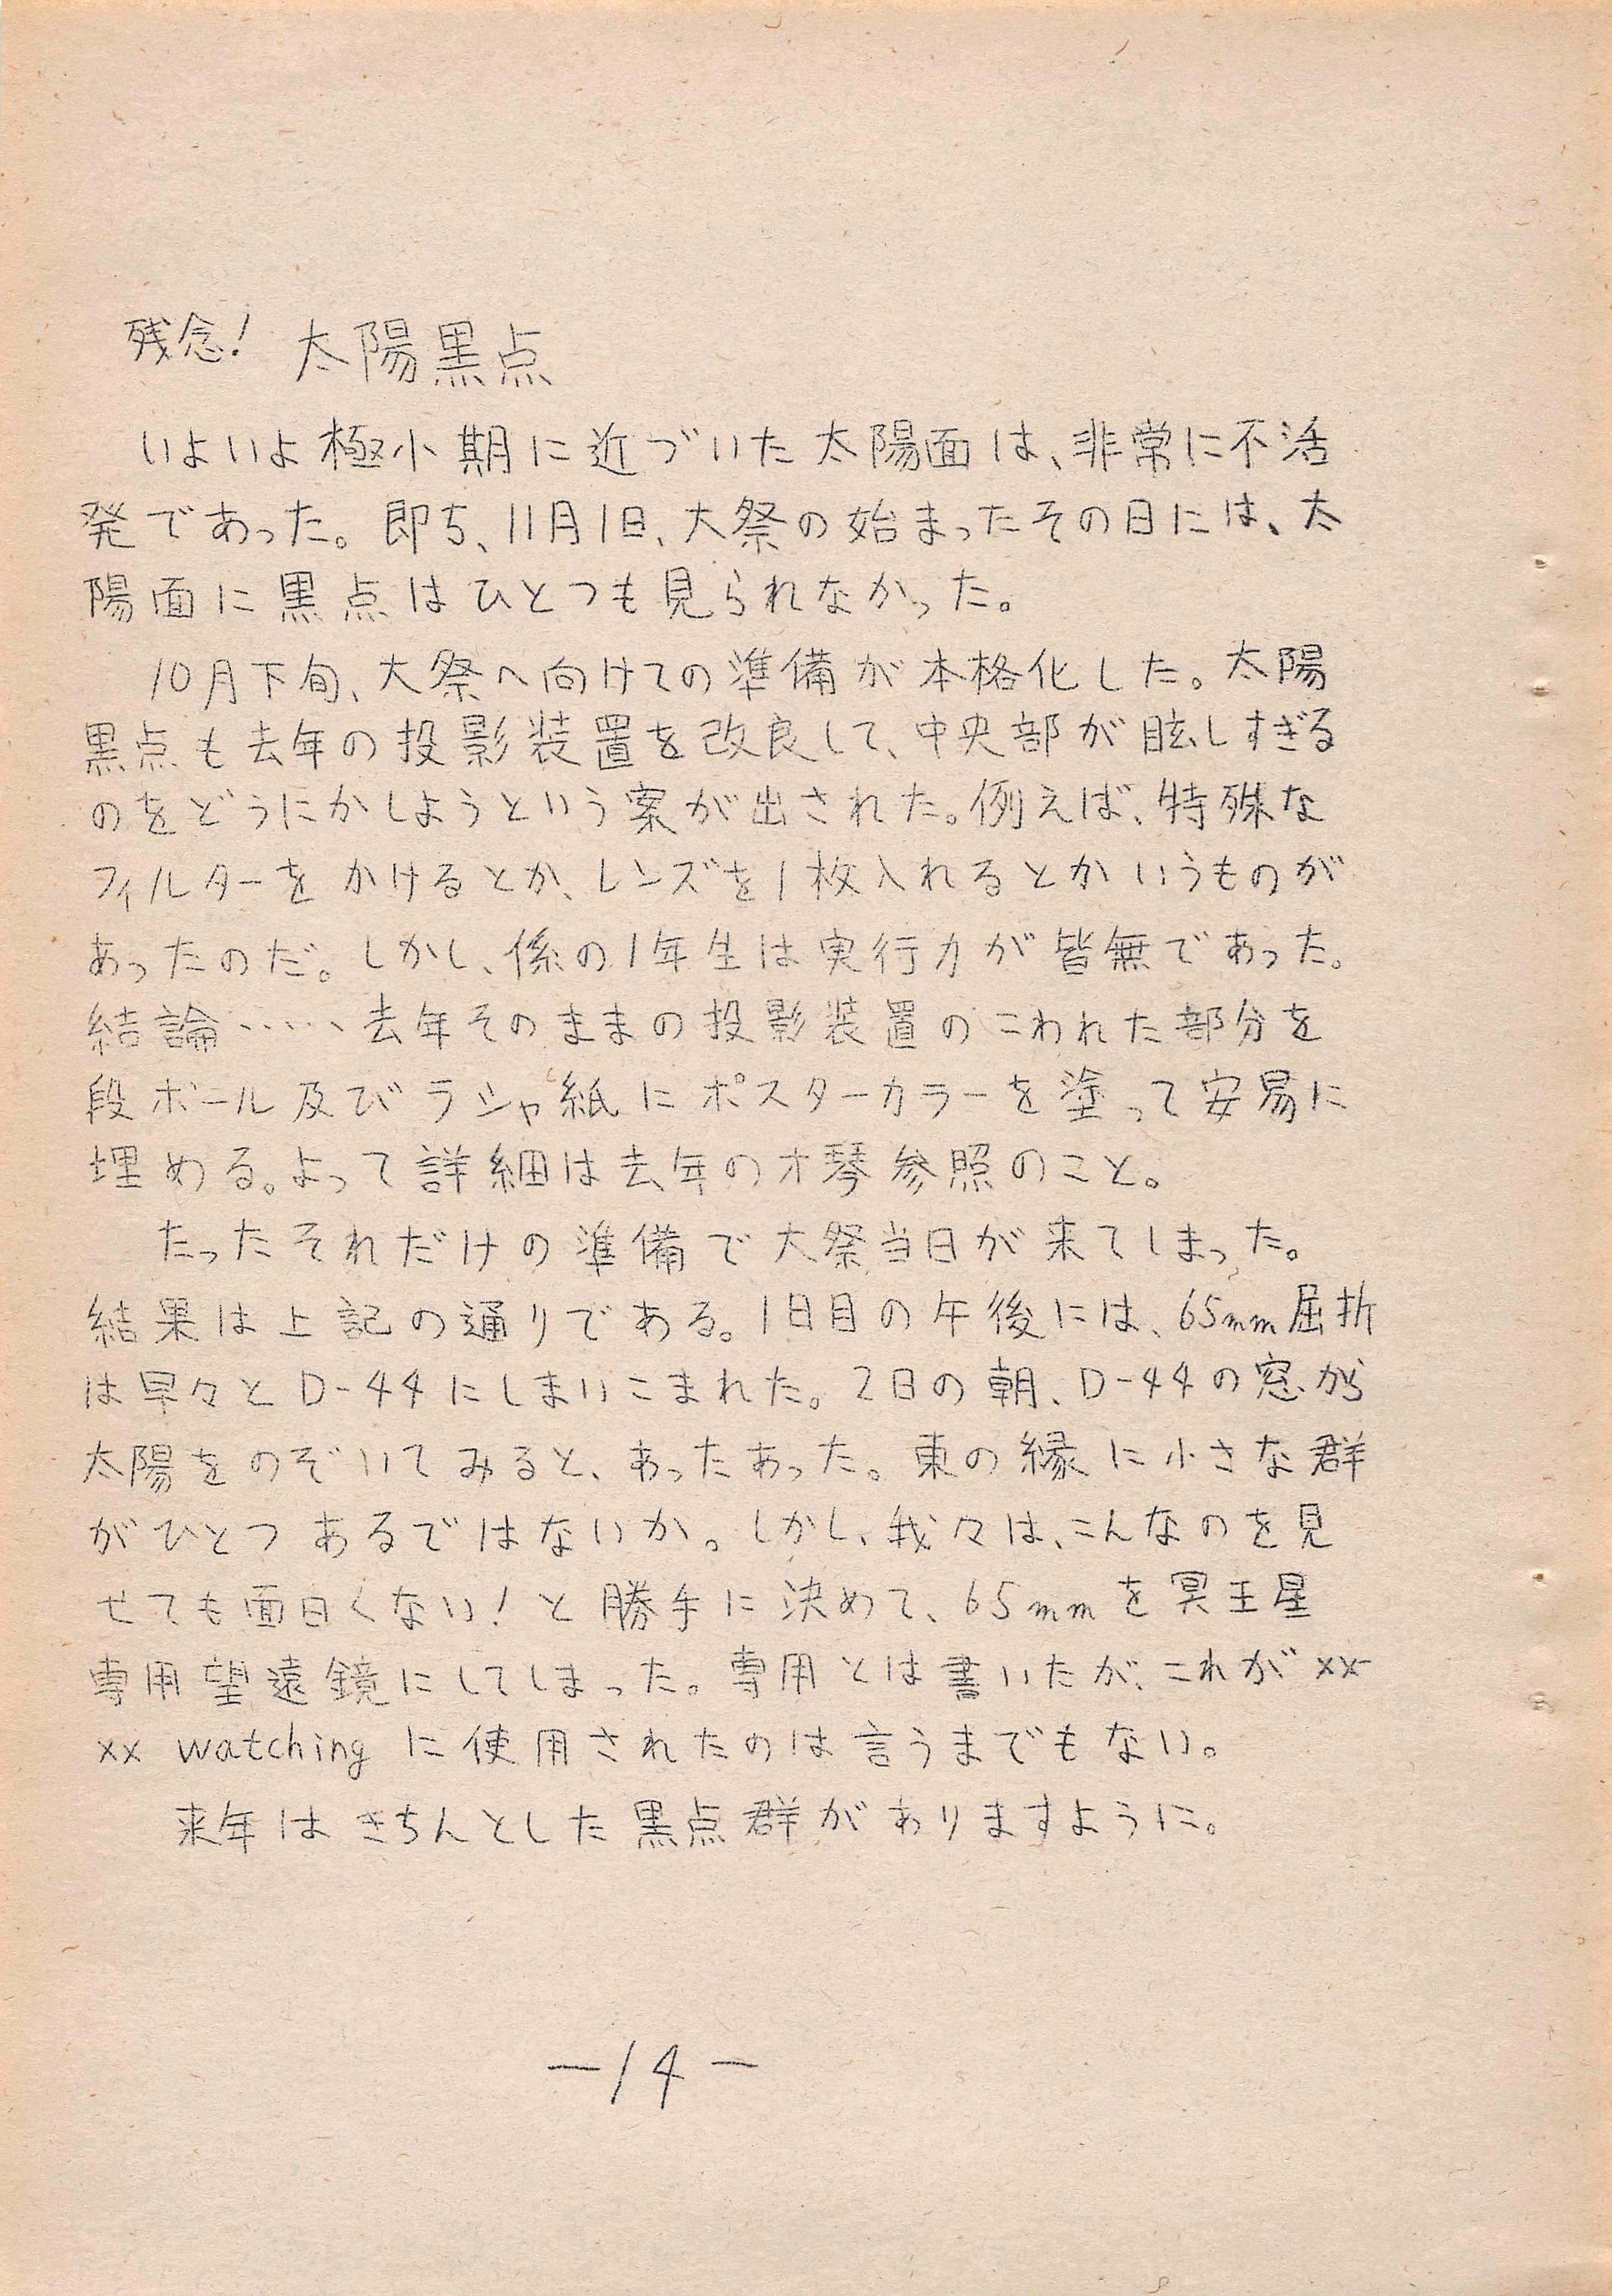 残念! 太陽黒点
いよいよ極小期に近づいた太陽面は、非常に不活
発であった。即ち、11月1日、大祭の始まったその日には、太
陽面に黒点はひとつも見られなかった。
10月下旬、大祭へ向けての準備が本格化した。太陽
黒点も去年の投影装置を改良して、中央部が眩しすぎる
のをどうにかしようという案が出された。例えば、特殊な
フィルターをかけるとか、レンズを1枚入れるとかいうものが
あったのだ。しかし、係の1年生は実行力が皆無であった。
結論……去年そのままの投影装置のこわれた部分を
段ボール及びラシャ紙にポスターカラーを塗って安易に
埋める。よって詳細は去年のオ琴参照のこと。
たったそれだけの準備で大祭当日が来てしまった。
結果は上記の通りである。1日目の午後には、65mm屈折
は早々とD-44にしまいこまれた。2日の朝、D-44の窓から
太陽をのぞいてみると、あったあった。東の縁に小さな群
がひとつあるではないか。しかし、我々は、こんなのを見
せても面白くない!と勝手に決めて、65mmを冥王星
専用望遠鏡にしてしまった。専用とは書いたが、これがxx
xx watchingに使用されたのは言うまでもない。
来年はきちんとした黒点群がありますように。
-14-